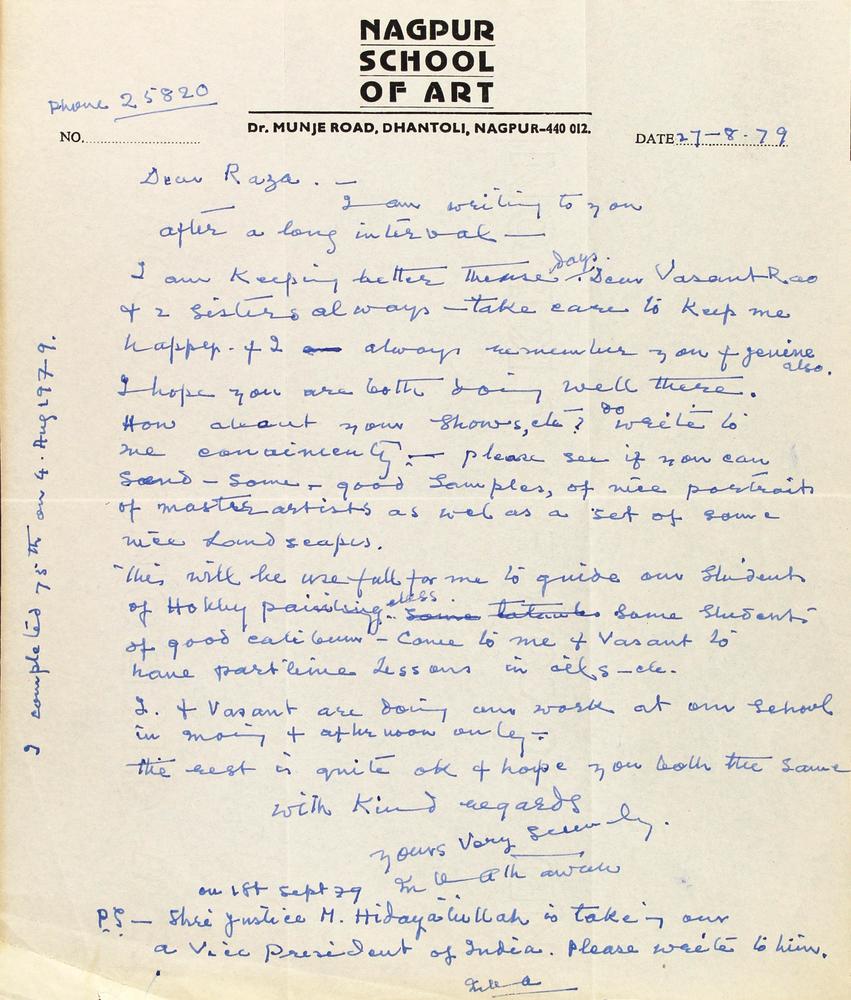 NAGPUR
SCHOOL
OF ART
Phone 25820
Dr. MUNJE ROAD, DHANTOLI, NAGPUR-440 012.
NO. DATE 27-8-79
Dear Raza. —
I am writing to you
after a long interval —
I am Keeping better these days. Dear Vasant Rao
& 2 Sisters always - take care to Keep me
happy. & I always remember you & Jenine
also.
I hope you are both doing well there.
How about your Shows, etc? Do write to
me — please see if you can
Send - Some - good Samples, of nice portraits
of master artists as wel as a set of some
nice Landscapes.
This will be usefull for me to guide our Students
of Hobby painting class. Some Students
of good - Come to me & Vasant to
have part time Lessons in oils - etc.
I. & Vasant are doing our work at our School
in & afternoon only -
The rest is quite ok & hope you both the Same
with Kind regards
yours Very
on 1st Sept 79
P.S — Shri Justice M. Hidayatullah is taking our
a Vice President of India. Please write to him.
I completed 75th on 4. Aug 1979.